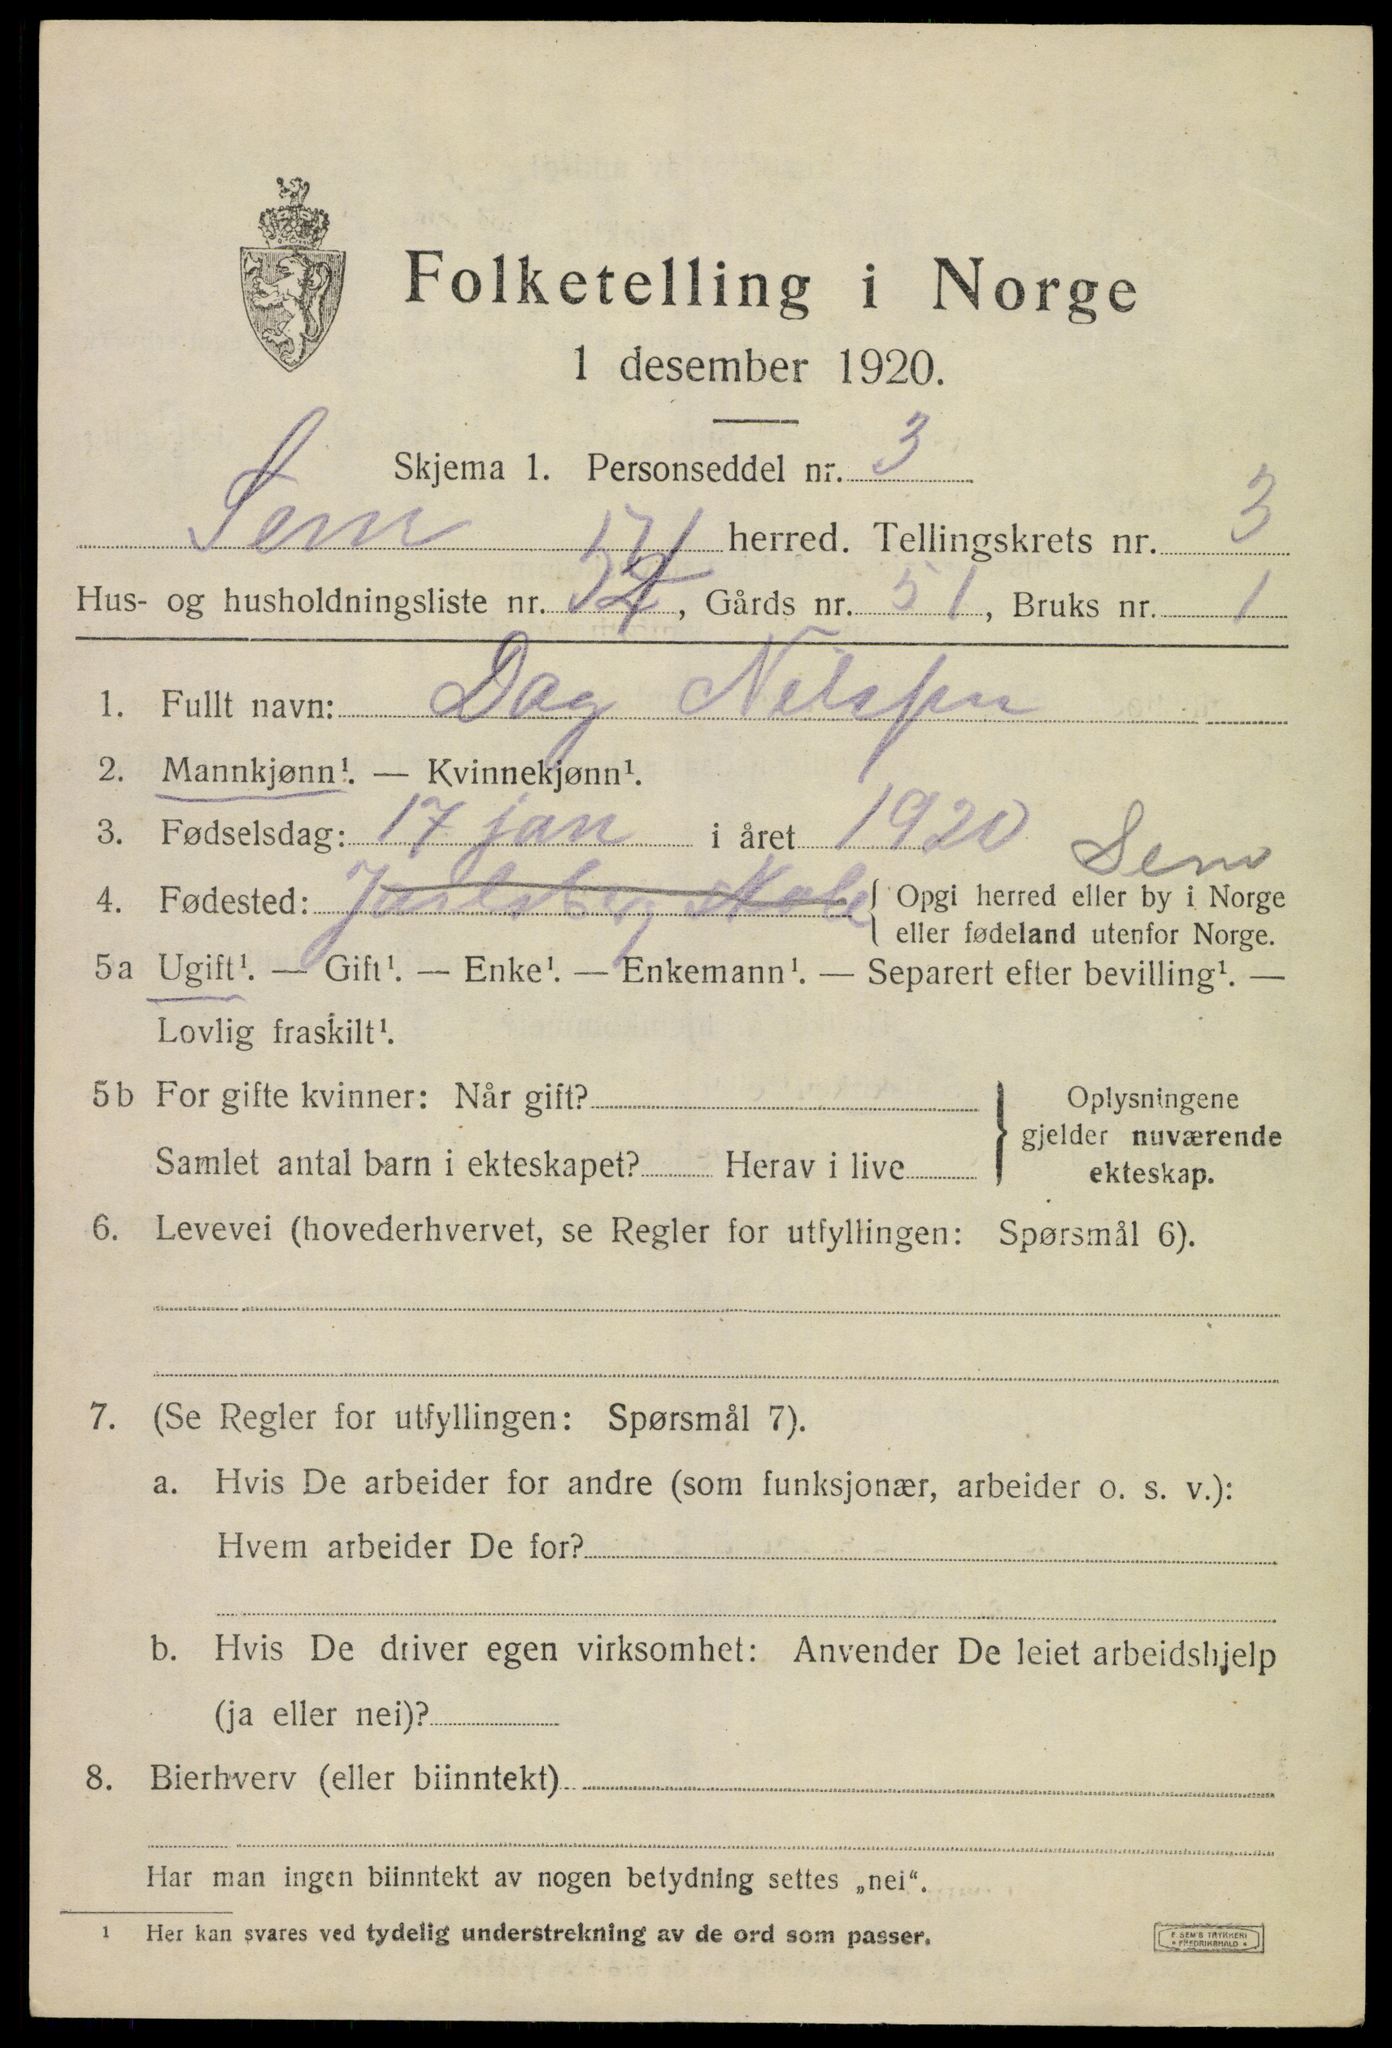 Folketelling i Norge
1 desember 1920.
Skjema 1. Personseddel nr. 3
Sem herred. Tellingskrets nr. 3
Hus- og husholdningsliste nr. , Gårds nr. 51, Bruks nr. 1
1. Fullt navn: Dag Nilsen
2. Mannkjønn¹. — Kvinnekjønn¹.
3. Fødselsdag: 17 jan i året 1920
Sem
4. Fødested: Jarlsberg Skole { Opgi herred eller by i Norge
eller fødeland utenfor Norge.
5a Ugift¹. — Gift¹. — Enke¹. — Enkemann¹. — Separert efter bevilling¹. —
Lovlig fraskilt¹.
5b For gifte kvinner: Når gift? } Oplysningene
gjelder nuværende
Samlet antal barn i ekteskapet? Herav i live
ekteskap.
6. Levevei (hovederhvervet, se Regler for utfyllingen: Spørsmål 6).
7. (Se Regler for utfyllingen: Spørsmål 7).
a. Hvis De arbeider for andre (som funksjonær, arbeider o. s. v.):
Hvem arbeider De for?
b. Hvis De driver egen virksomhet: Anvender De leiet arbeidshjelp
(ja eller nei)?
8. Bierhverv (eller biinntekt)
Har man ingen biinntekt av nogen betydning settes „nei“.
¹ Her kan svares ved tydelig understrekning av de ord som passer.
F. SEM'S TRYKKERI
• FREDRIKSHALD •